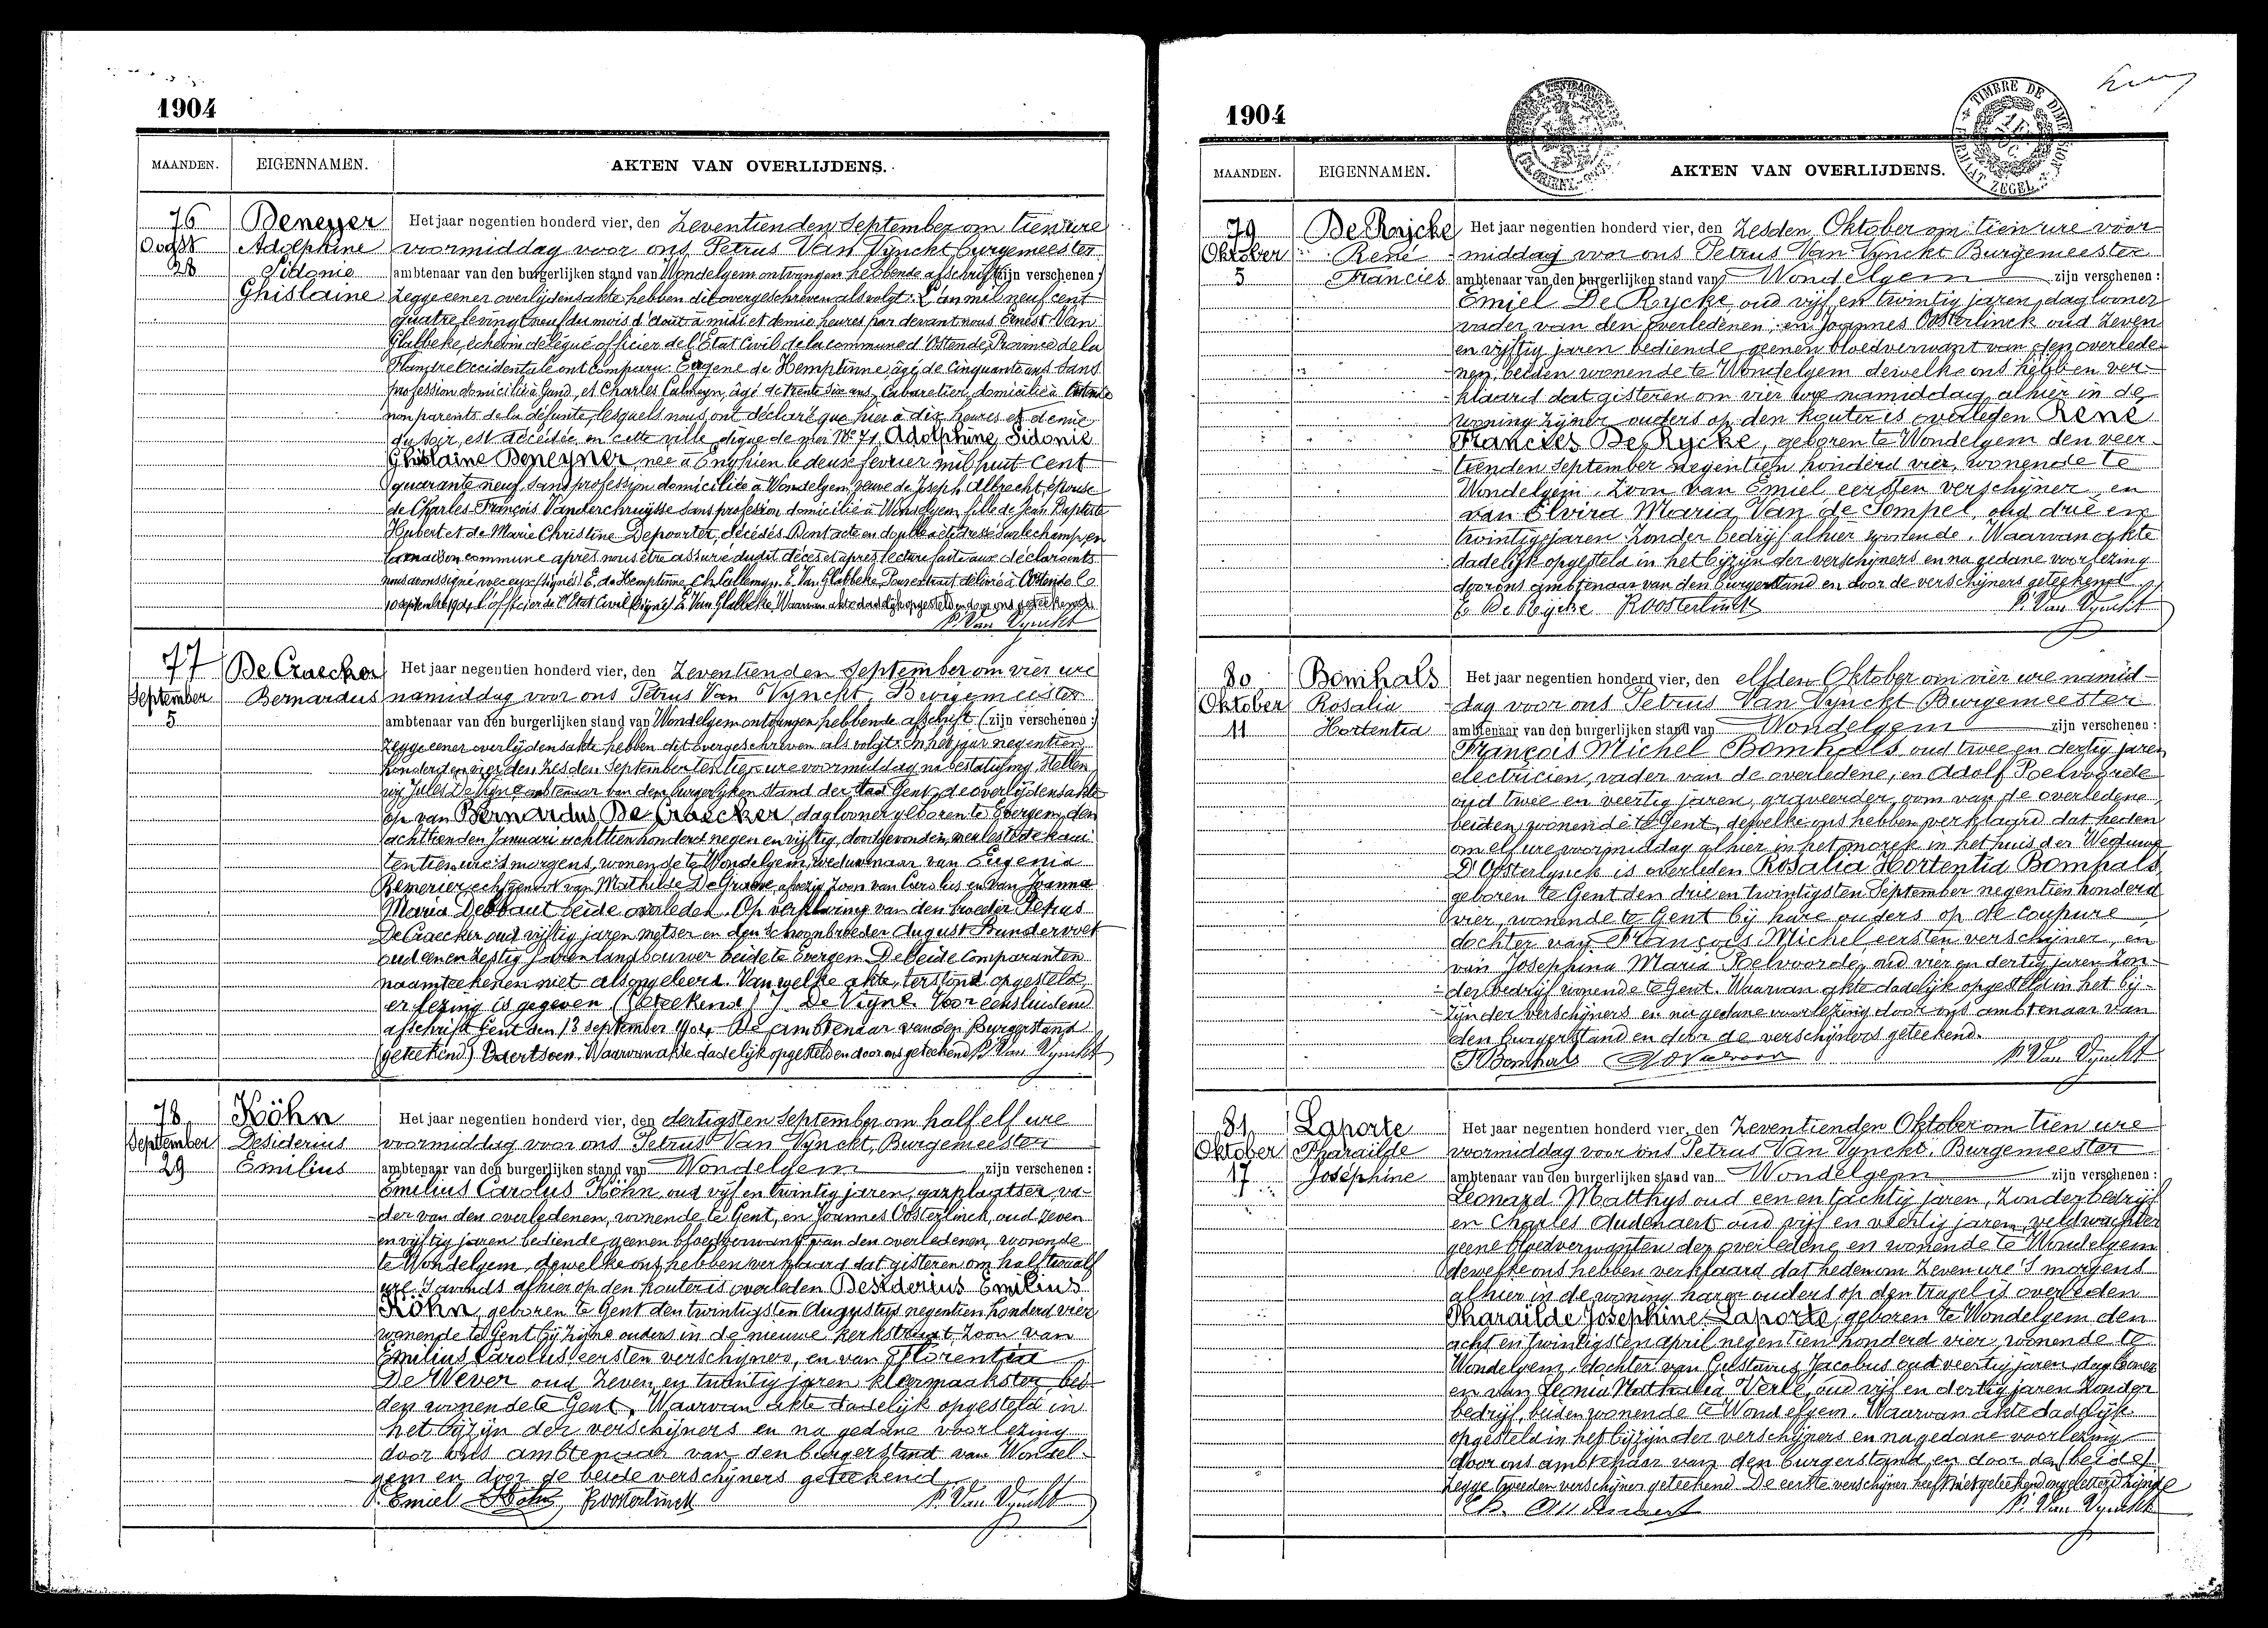 1904
MAANDEN. EIGENNAMEN. AKTEN VAN OVERLIJDENS.
76 Deneyer Het jaar negentien honderd vier, den Zeventienden September om tien ure
Oogst Adolphine voormiddag voor ons Petrus Van Vynckt Burgemeester
28 Sidonie ambtenaar van den burgerlijken stand van Wondelgem ontvangen hebbende afschrift zijn verschenen:
Ghislaine Zegge eener overlijdensakte hebben dit overgeschreven als volgt: L'an mil neuf cent
quatre le vingt neuf du mois d'août à midi et demie heures par devant nous Ernest Van
Glabbeke, échevin délégué officier de l'Etat Civil de la commune d'Ostende, Province de la
Flandre Occidentale ont comparu: Eugene de Hemptinne âgé de Cinquante ans Sans
profession domicilié à Gand, et Charles Callmeyn, âgé de trente six ans, Cabaretier, domicilié à Ostende
non parents de la défunte, lesquels nous ont déclaré que hier à dix heures et demie
du soir, est décédée, en cette ville, digue de mer N° 71, Adolphine Sidonie
Ghislaine Deneyner, née à Enghien le deux fevrier mil huit cent
quarante neuf, Sans profession domiciliée à Wondelgem, veuve de Joseph Albrecht, épouse
de Charles François Vanderchruysse sans profession domicilié à Wondelgem, fille de Jean Baptiste
Hubert et de Marie Christine Depoorter, décédés. Dont acte en double a été dressé sur le champ en
la maison commune après nous être assuré dudit décès et après lecture faite aux déclarants
nous avons signé avec eux (signés) E. de Hemptinne, Ch. Callmeyn. E. Van Glabbeke. Pour extrait délivré à Ostende le
10 septembre 1904 L'officier de l'Etat Civil (signé) E. Van Glabbeke Waarvan akte dadelijk opgesteld en door ons geteekend
P. Van Vynckt
77 De Craecker Het jaar negentien honderd vier, den Zeventienden September om vier ure
September Bernardus namiddag voor ons Petrus Van Vynckt, Burgemeester
5 ambtenaar van den burgerlijken stand van Wondelgem ontvangen hebbende afschrift (zijn verschenen:)
Zegge eener overlijdensakte hebben dit overgeschreven als volgt: In het jaar negentien
honderd en vier den zesden September ten tien ure voormiddag na bestatiging Stellen
wij Jules De Vigne ambtenaar van den burgerlyken stand der stad Gent, de overlijdensakte
op van Bernardus De Craecker, daglooner geboren te Evergem, den
achttienden Januari achttien honderd negen en vijftig, dood gevonden,
tentien ure s morgens, wonende te Wondelgem, weduwnaar van Eugenia
echtgenoot van Mathilde De Graeve afwezig Zoon van Carolus en van Joanna
Maria Debbaut beide overleden. Op verklaring van den broeder Petrus
De Craecker oud vijftig jaren metser en den schoonbroeder August Bundervoet
oud een en zestig jaren landbouwer beide te Evergem. De beide Comparanten
naamteekenen niet als ongeleerd. Van welke akte, terstond opgesteld,
er lezing is gegeven (Geteekend) J. De Vigne. Voor eensluidend
afschrift Gent den 13 september 1904. De ambtenaar van den Burgerstand
(geteekend) Waarvan akte dadelijk opgesteld en door ons geteekend P. Van Vynckt
78 Köhn Het jaar negentien honderd vier, den dertigsten September om half elf ure
September Desiderius voormiddag voor ons Petrus Van Vynckt, Burgemeester
29 Emilius ambtenaar van den burgerlijken stand van Wondelgem zijn verschenen:
Emilius Carolus Köhn, oud vijf en twintig jaren, gazplaatser, va-
der van den overledenen, wonende te Gent, en Joannes Oosterlinck, oud zeven
en vijftig jaren bediende geenen bloedverwant van den overledenen, wonende
te Wondelgem, dewelke ons hebben verklaard dat gisteren om half twaalf
ure s avonds alhier op den kouter is overleden Desiderius Emilius
Köhn, geboren te Gent den twintigsten Augustus negentien honderd vier
wonende te Gent bij zijne ouders in de nieuwe kerkstraat, Zoon van
Emilius Carolus eersten verschijner, en van Florentia
De Wever oud Zeven en twintig jaren kleermaakster, bei-
den wonende te Gent. Waarvan akte dadelijk opgesteld in
het bijzijn der verschijners en na gedane voorlezing
door ons ambtenaar van den burgerstand van Wondel-
gem en door de beide verschijners geteekend
Emiel Köhn, J Oosterlinck P. Van Vynckt
1904
MAANDEN. EIGENNAMEN. AKTEN VAN OVERLIJDENS.
TIMBRE DE DIMENSION
FORMAAT ZEGEL
79 De Rycke Het jaar negentien honderd vier, den Zesden Oktober om tien ure voor
Oktober René middag voor ons Petrus Van Vynckt Burgemeester
5 Francies ambtenaar van den burgerlijken stand van Wondelgem zijn verschenen:
Emiel De Rycke, oud vijf en twintig jaren, daglooner
vader van den overledenen, en Joannes Oosterlinck oud Zeven
en vijftig jaren bediende geenen bloedverwant van den overlede-
nen, beiden wonende te Wondelgem dewelke ons hebben ver-
klaard dat gisteren om vier ure namiddag, alhier in de
woning zijner ouders op den kouter is overleden René
Francies De Rycke, geboren te Wondelgem den veer-
tienden September negentien honderd vier, wonende te
Wondelgem, Zoon van Emiel eersten verschijner, en
van Elvira Maria Van de Sompel, oud drie en
twintig jaren Zonder bedrijf alhier wonende. Waarvan akte
dadelijk opgesteld in het bijzijn der verschijners en na gedane voorlezing
door ons ambtenaar van den burgerstand en door de verschijners geteekend
E. De Rycke J Oosterlinck P. Van Vynckt
80 Bomhals Het jaar negentien honderd vier, den elfden Oktober om vier ure namid-
Oktober Rosalia dag voor ons Petrus Van Vynckt Burgemeester
11 Hortentia ambtenaar van den burgerlijken stand van Wondelgem zijn verschenen:
François Michel Bomhals, oud twee en dertig jaren
electricien, vader van de overledene, en Adolf Poelvoorde
oud twee en veertig jaren, graveerder, oom van de overledene,
beiden wonende te Gent, dewelke ons hebben verklaard dat heden
om elf ure voormiddag alhier in het in het huis der Weduwe
D'Oosterlynck is overleden Rosalia Hortentia Bomhals,
geboren te Gent den drie en twintigsten September negentien honderd
vier, wonende te Gent bij hare ouders op de Coupure
dochter van François Michel eersten verschijner, en
van Josephina Maria Poelvoorde, oud vier en dertig jaren Zon-
der bedrijf wonende te Gent. Waarvan akte dadelijk opgesteld in het bij-
zijn der verschijners en na gedane voorlezing door ons ambtenaar van
den burgerstand en door de verschijners geteekend.
F Bomhals P. Van Vynckt
81 Laporte Het jaar negentien honderd vier, den Zeventienden Oktober om tien ure
Oktober Pharaïlde voormiddag voor ons Petrus Van Vynckt, Burgemeester
17 Joséphine ambtenaar van den burgerlijken stand van Wondelgem zijn verschenen:
Leonard Matthys oud een en tachtig jaren, Zonder bedrijf
en Charles Audenaert oud vijf en veertig jaren, veldwachter
geene bloedverwanten der overledene en wonende te Wondelgem
dewelke ons hebben verklaard dat heden om Zeven ure 's morgens
alhier in de woning harer ouders op den tragel is overleden
Pharaïlde Josephine Laporte, geboren te Wondelgem den
acht en twintigsten april negentien honderd vier, wonende te
Wondelgem, dochter van Gustavus Jacobus oud veertig jaren, daglooner
en van Leonia Nathalia Verlé, oud vijf en dertig jaren Zonder
bedrijf, beiden wonende te Wondelgem. Waarvan akte dadelijk
opgesteld in het bijzijn der verschijners en na gedane voorlezing
door ons ambtenaar van den burgerstand en door den beide
Zegge tweeden verschijner geteekend De eerste verschijner heeft niet geteekend ongeletterd zijnde
Ch. Audenaert P. Van Vynckt